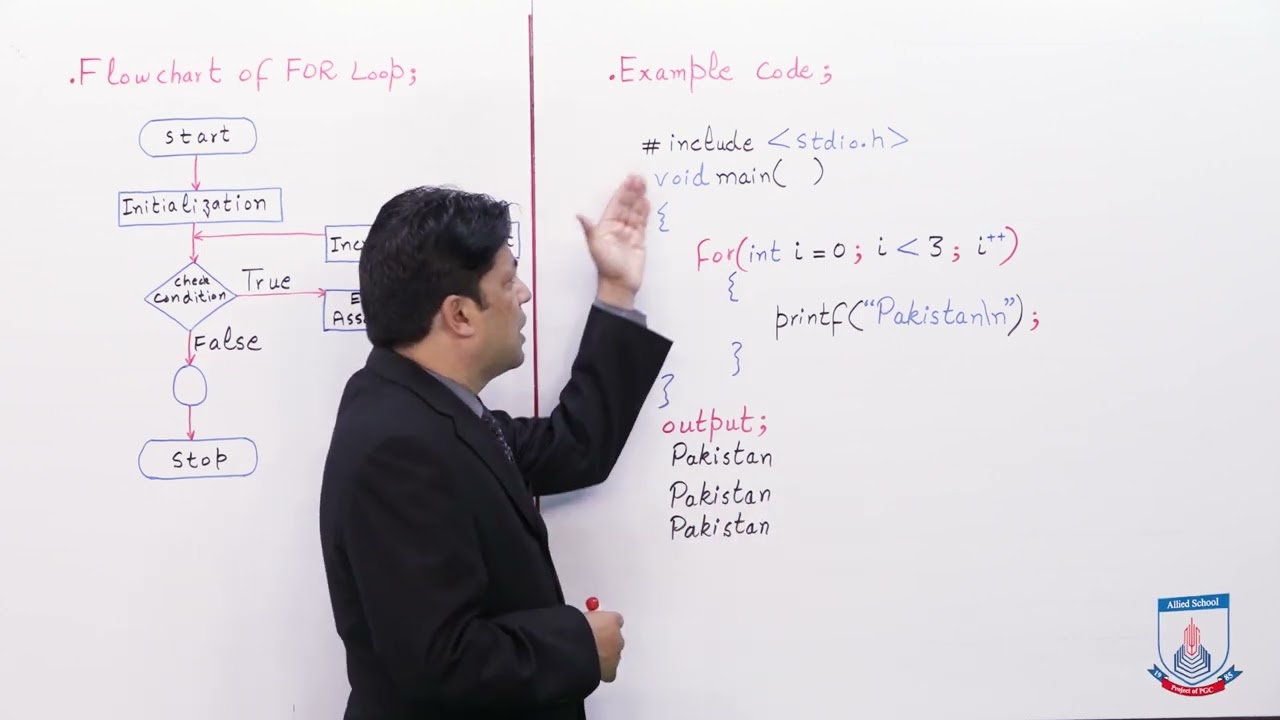 .Flowchart of FOR Loop;
start
Initialization
check
condition
True
False
stop
.Example code;
# include <stdio.h>
void main( )
{
for(int i = 0; i < 3; i++)
{
printf("Pakistan\n");
}
}
output;
Pakistan
Pakistan
Pakistan
Allied School
19 85
Project of PGC